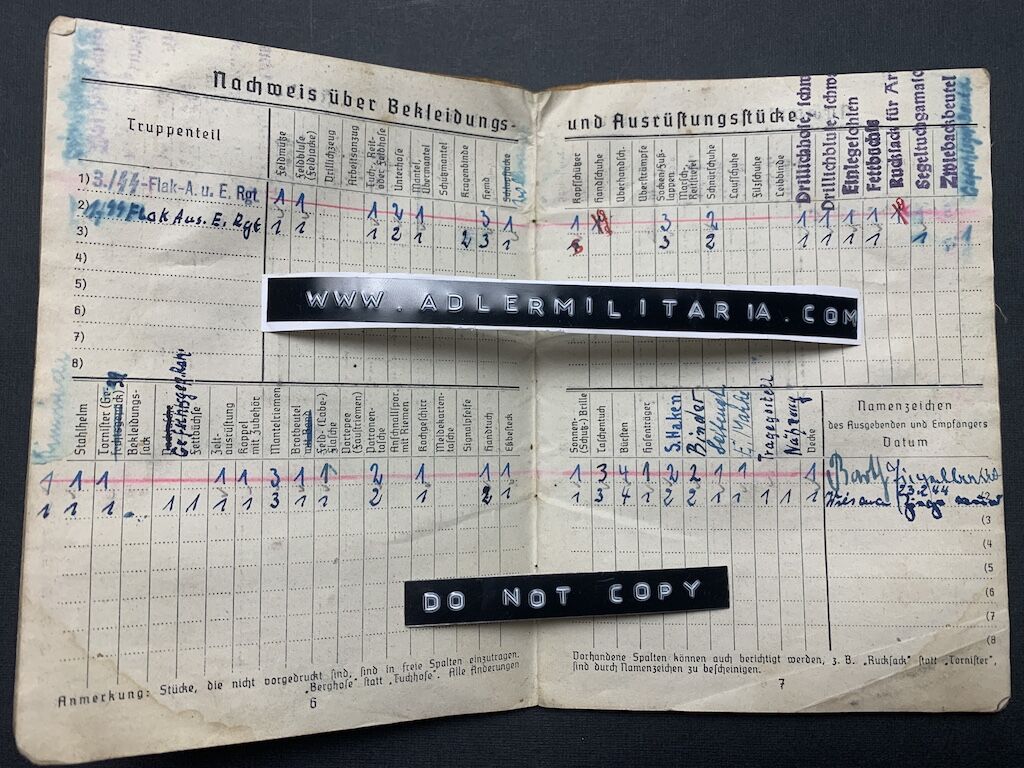 Nachweis über Bekleidungs-
Truppenteil
Feldmütze
Feldbluse (Feldjacke)
Drillichzeug
Arbeitsanzug
Tuch-, Reit- oder Feldhose
Unterhose
Mantel, Übermantel
Schutzmantel
Kragenbinde
Hemd
1) 3./SS-Flak-A. u. E. Rgt. 1 1 1 2 1 3
2) SS Flak Aus. E. Rgt. 1 1 1 2 1 2 3 1
3)
4)
5)
6)
7)
8)
Stahlhelm
Tornister
Bekleidungssack
Fettbüchse
Zeltausrüstung
Koppel mit Zubehör
Mantelriemen
Brotbeutel mit Band
Feld-(Labe-) Flasche
Portepee (Faustriemen)
Patronentasche
Anschnallsporen mit Riemen
Kochgeschirr
Meldekartentasche
Signalpfeife
Handtuch
Eßbesteck
1 1 1 1 1 3 1 1 2 1 1 1
1 1 1 1 1 1 1 3 1 1 2 1 2 1
Anmerkung: Stücke, die nicht vorgedruckt sind, sind in freie Spalten einzutragen.
„Berghose“ statt „Tuchhose“. Alle Änderungen
6
und Ausrüstungsstücke
Kopfschützer
Handschuhe
Überhandsch.
Überstrümpfe
Socken, Fußlappen
Marsch-, Reitstiefel
Schnürschuhe
Laufschuhe
Filzschuhe
Leibbinde
Drillichhose, schw
Drillichbluse, schwa
Einlegesohlen
Fettbuchse
Rucksack für Ar
Segeltuchgamasc
Zwiebackbeutel
1 3 2
3 2 1 1 1 1 1 1
Sonnen- (Schutz-) Brille
Taschentuch
Bürsten
Hosenträger
S. Haken
Binder
Tragegestell
Nähzeug
Decke
Namenzeichen
des Ausgebenden und Empfängers
Datum
1 3 4 1 2 2 1 1 1
1 3 4 1 2 2 1 1 1 1 1
23.2.44
(3
(4
(5
(6
(7
(8
Vorhandene Spalten können auch berichtigt werden, z. B. „Rucksack“ statt „Tornister“,
sind durch Namenzeichen zu bescheinigen.
7
WWW.ADLERMILITARIA.COM
DO NOT COPY